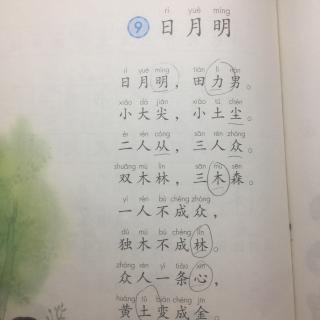 rì yuè míng
9 日月明
rì yuè míng tián lì nán
日月明，田力男。
xiǎo dà jiān xiǎo tǔ chén
小大尖，小土尘。
èr rén cóng sān rén zhòng
二人从，三人众。
shuāng mù lín sān mù sēn
双木林，三木森。
yì rén bù chéng zhòng
一人不成众，
dú mù bù chéng lín
独木不成林。
zhòng rén yì tiáo xīn
众人一条心，
huáng tǔ biàn chéng jīn
黄土变成金。